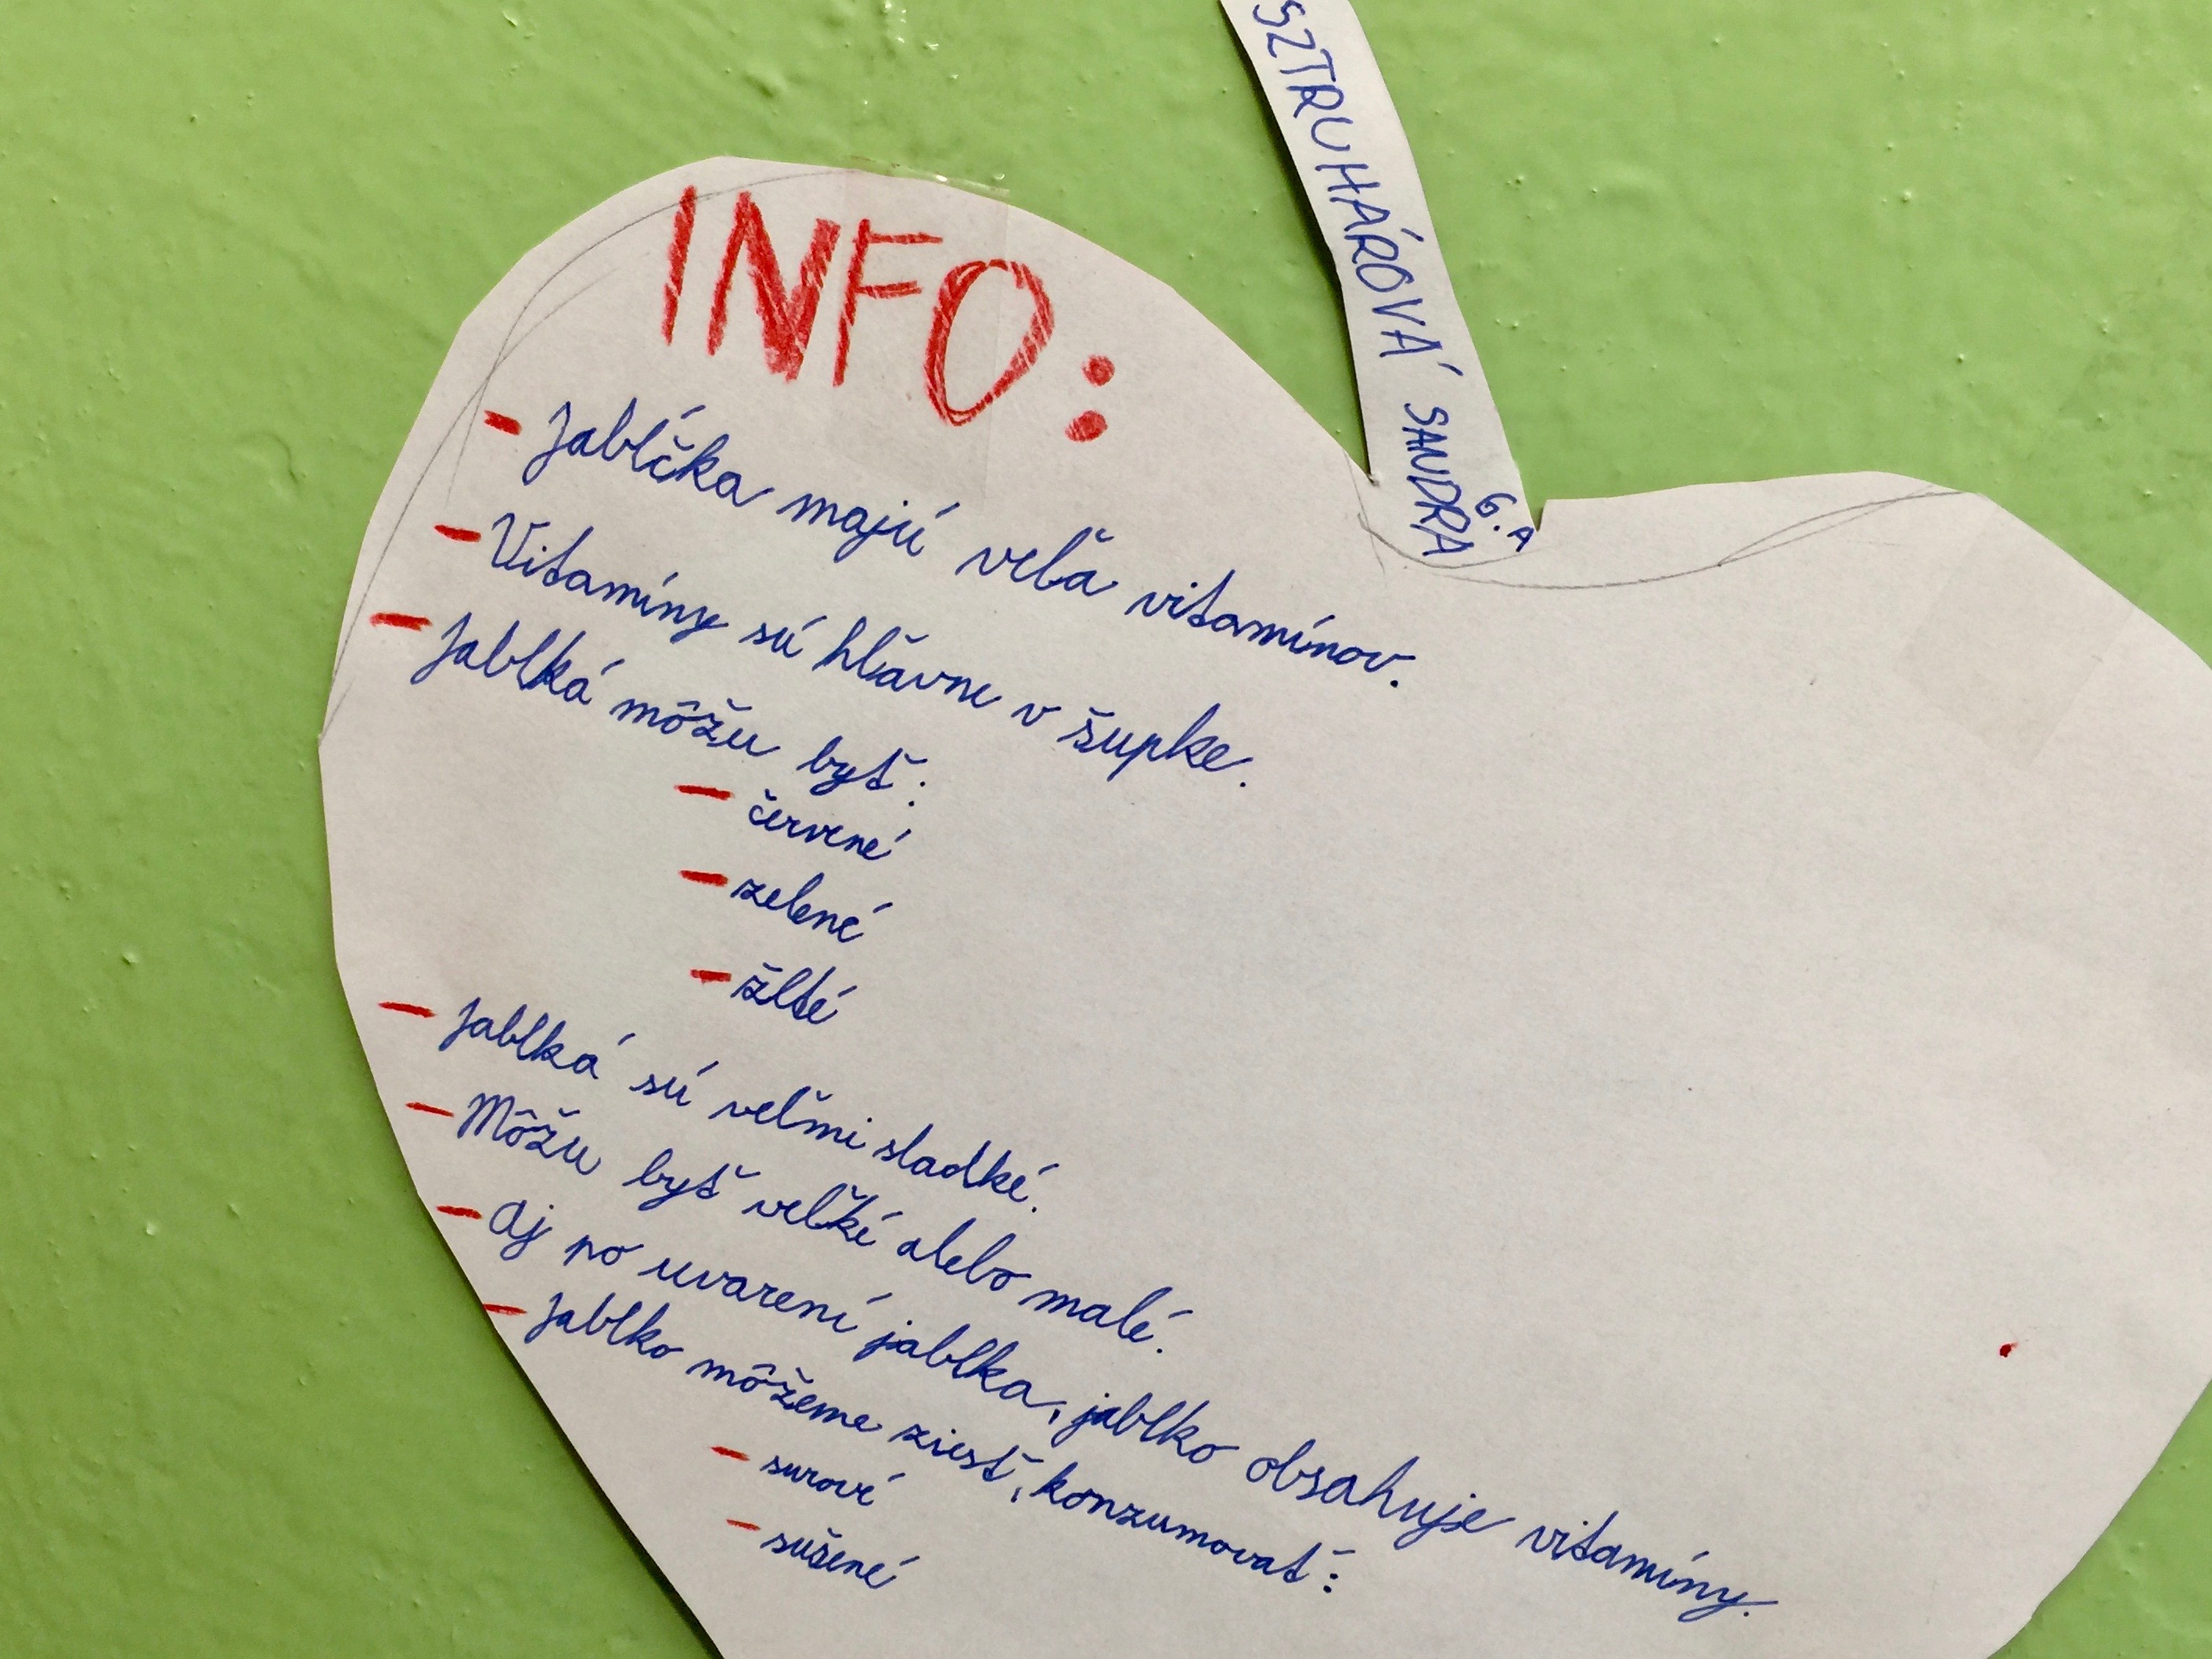 SZTRUHÁROVÁ SANDRA
6.A
INFO:
- Jabĺčka majú veľa vitamínov.
- Vitamíny sú hlavne v šupke.
- Jablká môžu byť:
- červené
- zelené
- žlté
- Jablká sú veľmi sladké.
- Môžu byť veľké alebo malé.
- Aj po uvarení jablka, jablko obsahuje vitamíny.
- Jablko môžeme ziesť, konzumovať:
- surové
- sušené